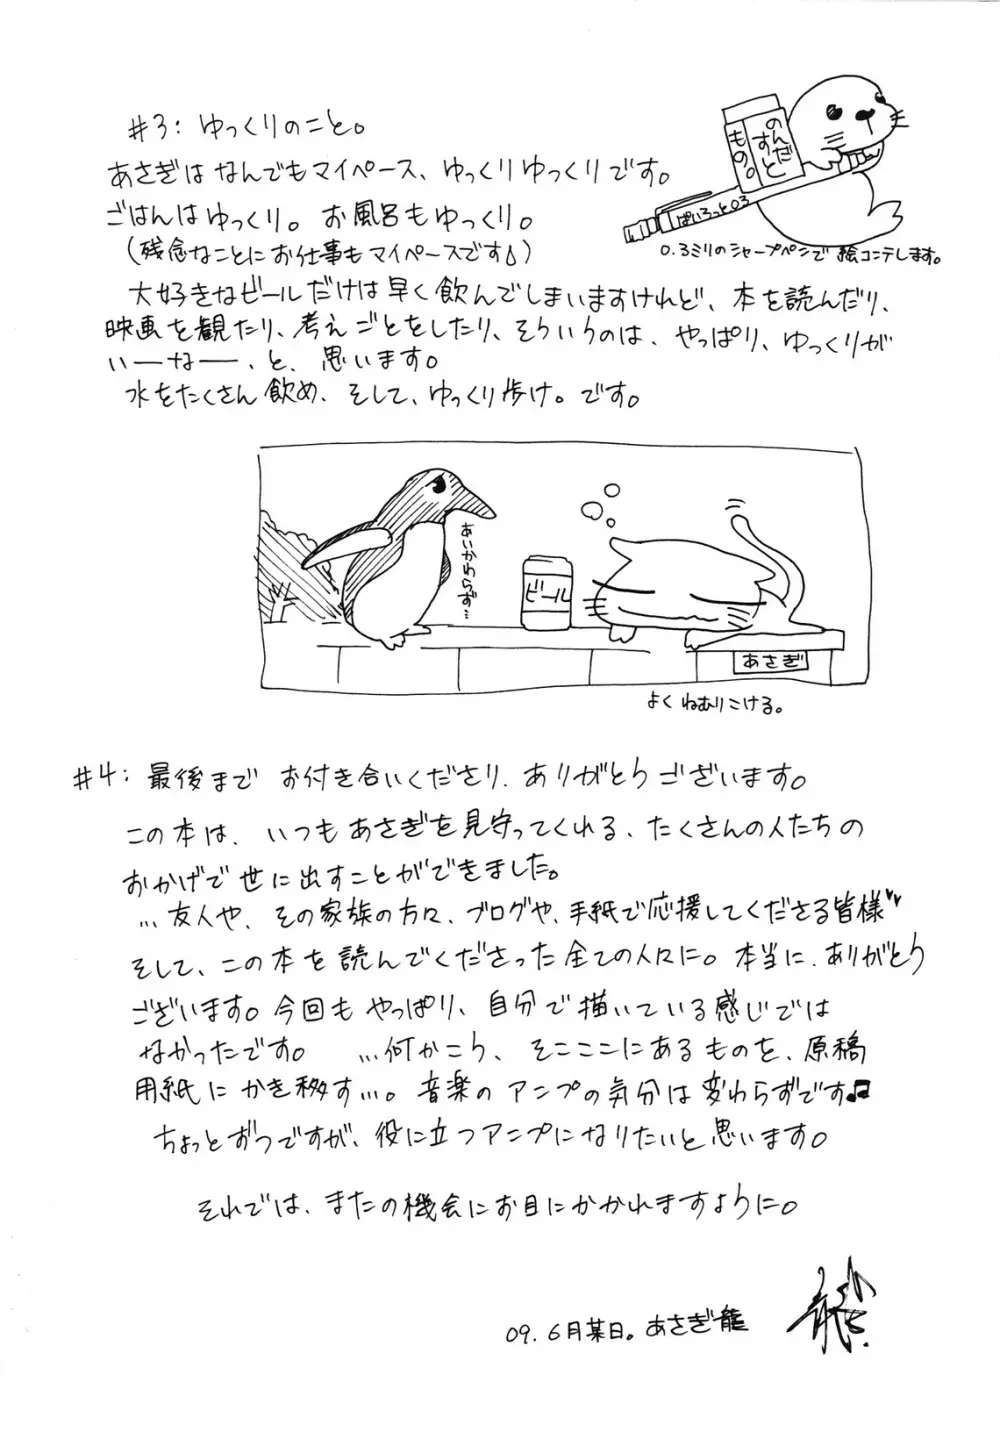 #3: ゆっくりのこと。
あさぎはなんでもマイペース、ゆっくりゆっくりです。
ごはんはゆっくり。お風呂もゆっくり。
(残念なことにお仕事もマイペースです)
大好きなビールだけは早く飲んでしまいますけれど、本を読んだり、
映画を観たり、考えごとをしたり、そういうのは、やっぱり、ゆっくりが
いーなー、と、思います。
水をたくさん飲め、そして、ゆっくり歩け。です。
のんだ
すと
もの。
ぱいろっと0.3
0.3ミリのシャープペンで絵コンテします。
あいかわらず…
ビール
あさぎ
よくねむりこける。
#4: 最後までお付き合いくださり、ありがとうございます。
この本は、いつもあさぎを見守ってくれる、たくさんの人たちの
おかげで世に出すことができました。
…友人や、その家族の方々、ブログや、手紙で応援してくださる皆様♥♥
そして、この本を読んでくださった全ての人々に。本当に、ありがとう
ございます。今回もやっぱり、自分で描いている感じでは
なかったです。 …何かこう、そこここにあるものを、原稿
用紙にかき移す…。音楽のアンプの気分は変わらずです♫
ちょっとずつですが、役に立つアンプになりたいと思います。
それでは、またの機会にお目にかかれますように。
09.6月某日。あさぎ龍